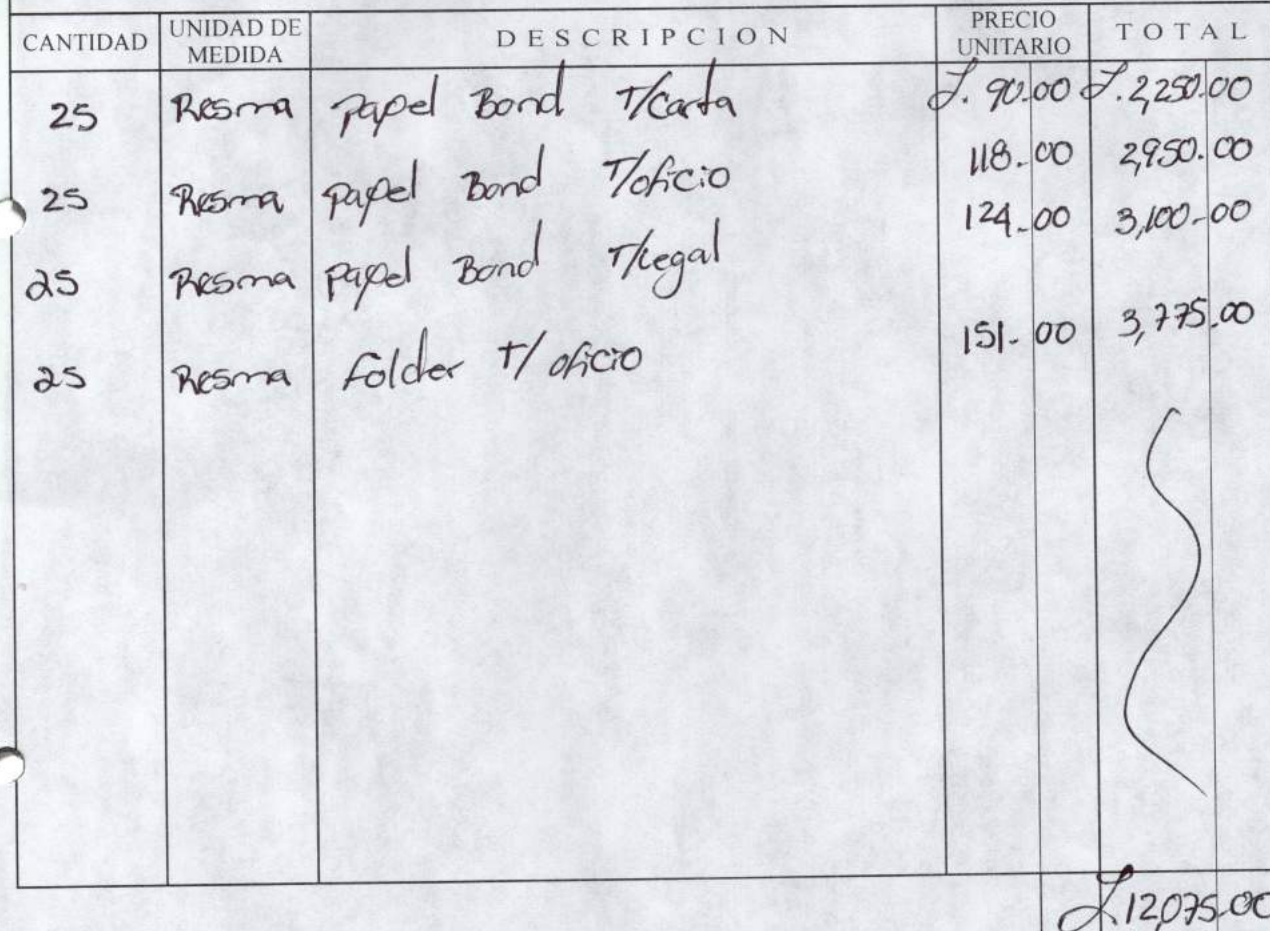 CANTIDAD UNIDAD DE MEDIDA DESCRIPCION PRECIO UNITARIO TOTAL
25 Resma papel Bond T/Carta L. 90.00 L. 2,250.00
25 Resma papel Bond T/oficio 118.00 2,950.00
25 Resma papel Bond T/Legal 124.00 3,100.00
25 Resma folder T/ oficio 151.00 3,775.00
L 12,075.00